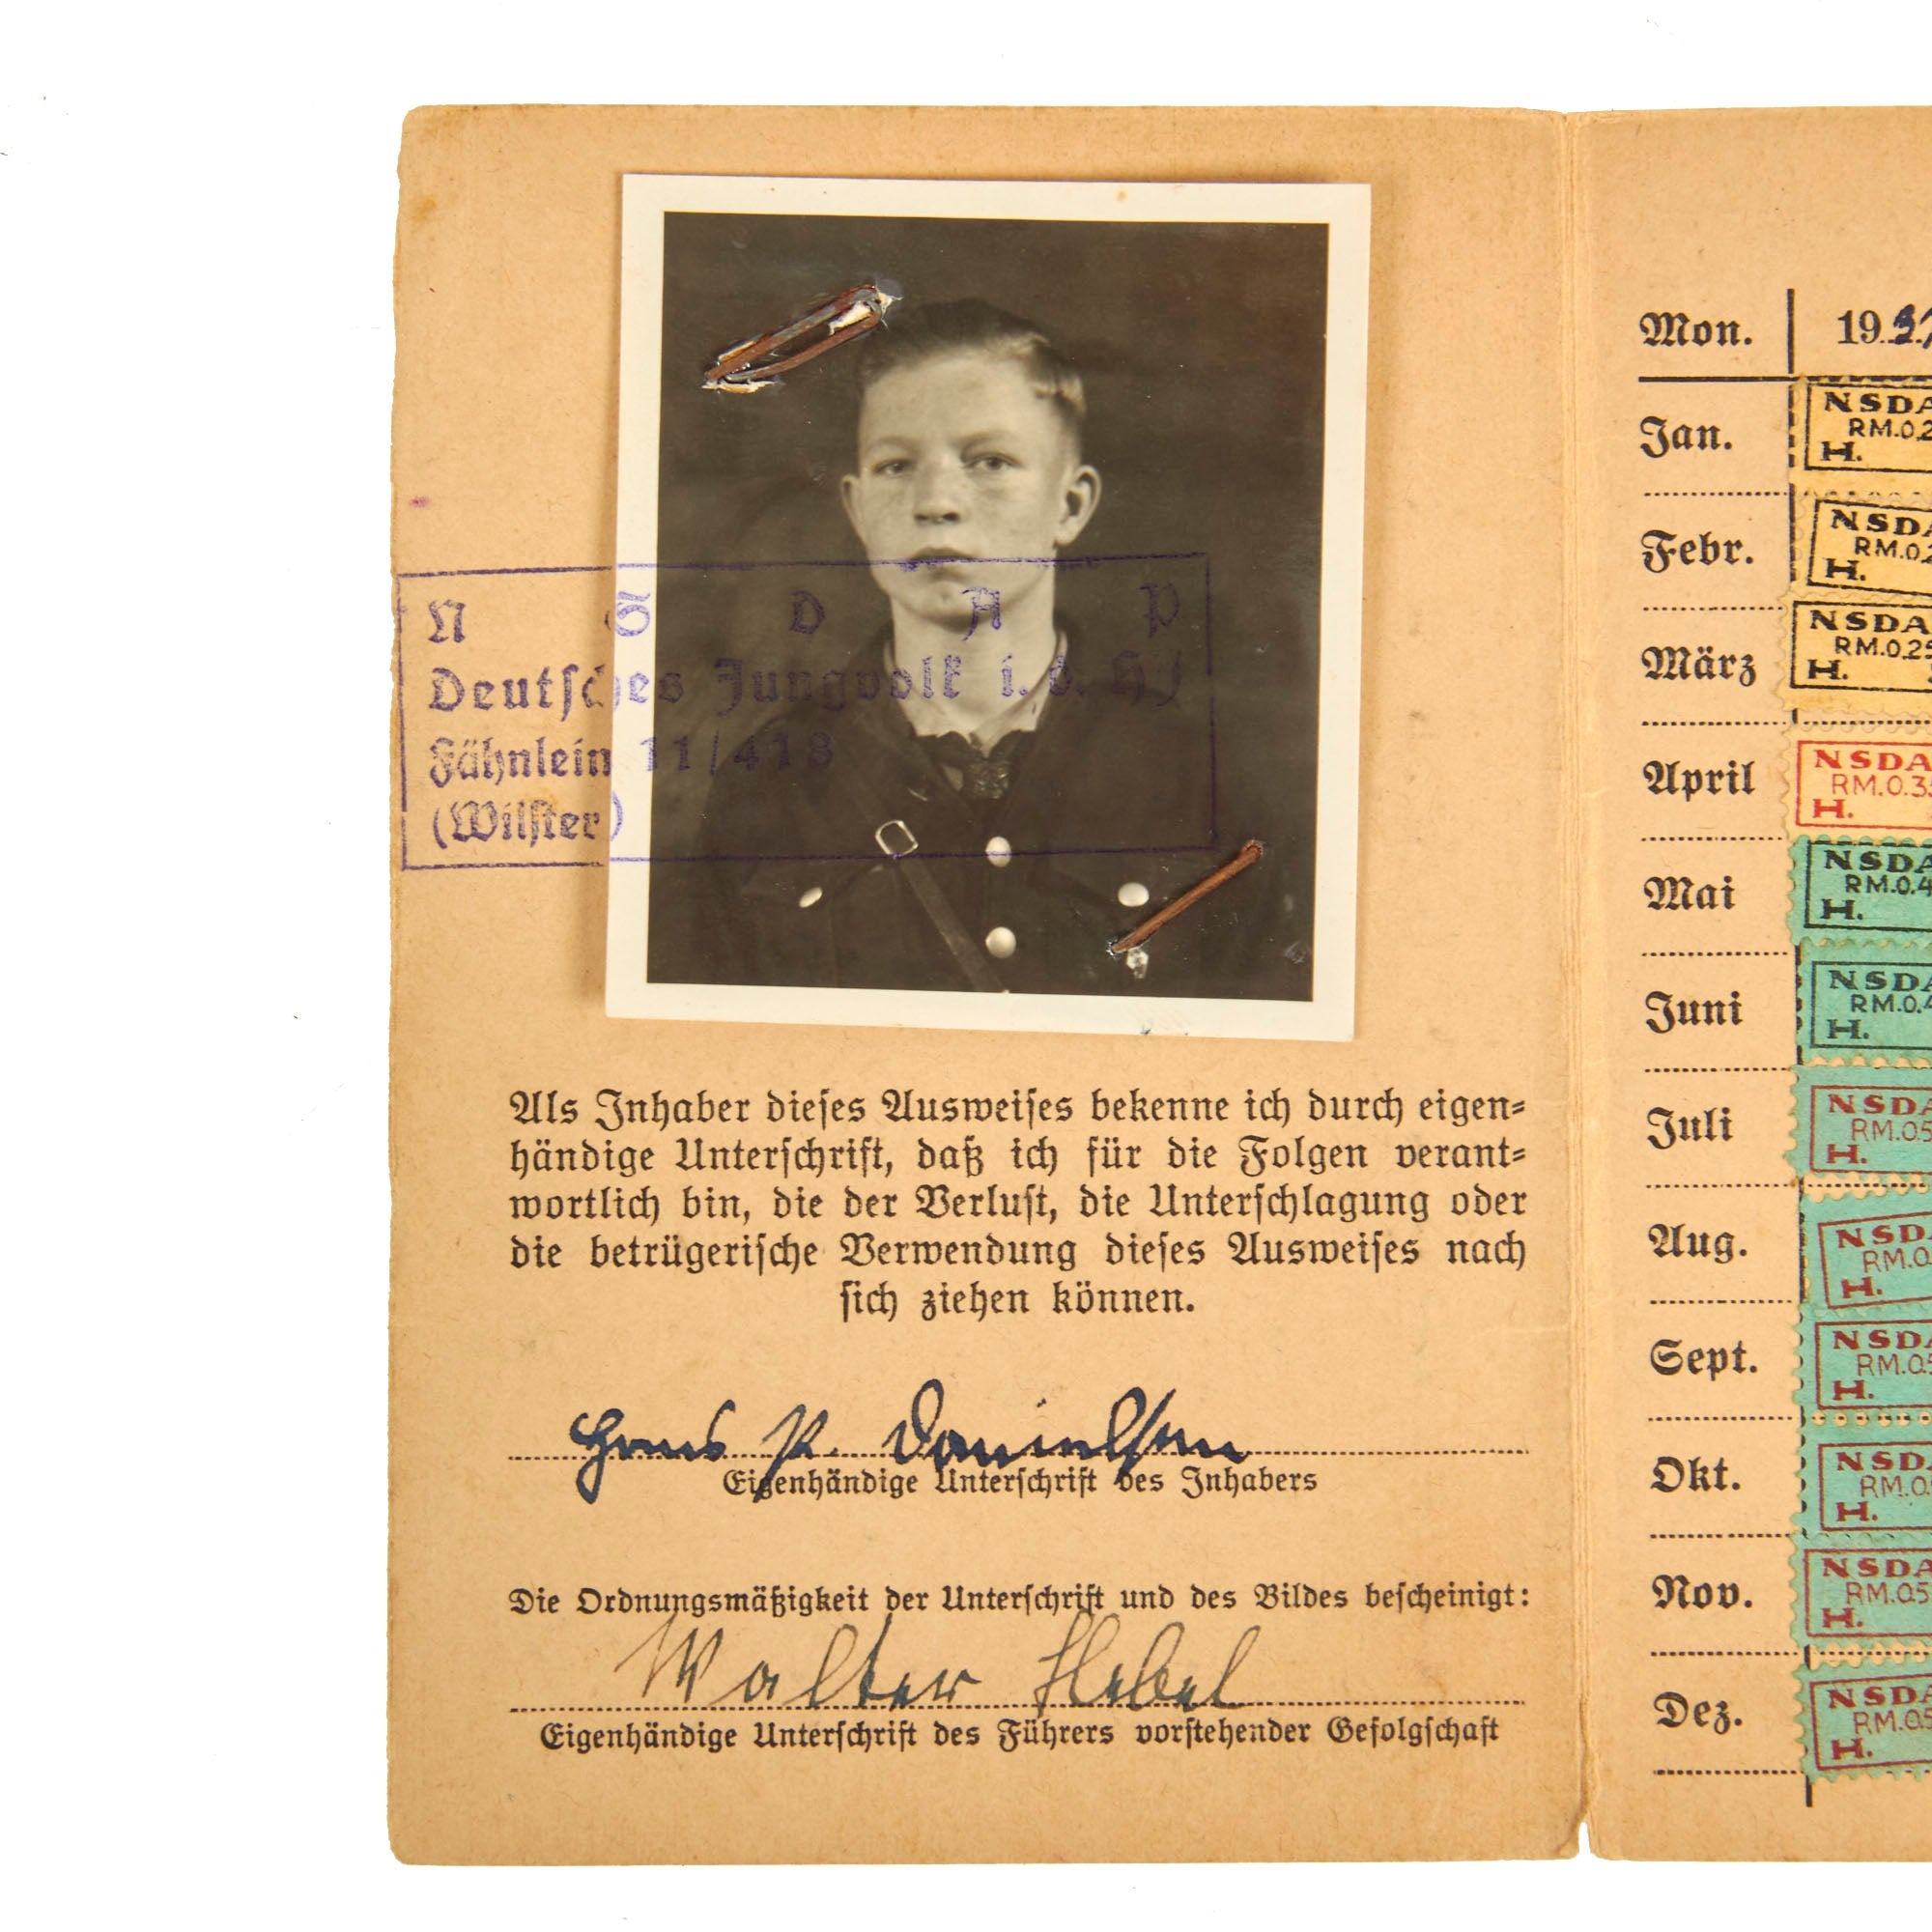 N S D A P
Deutsches Jungvolk i. d. HJ
Fähnlein 11/418
(Wilster)
Als Inhaber dieses Ausweises bekenne ich durch eigen=
händige Unterschrift, daß ich für die Folgen verant=
wortlich bin, die der Verlust, die Unterschlagung oder
die betrügerische Verwendung dieses Ausweises nach
sich ziehen können.
Hans P. Danielsen
Eigenhändige Unterschrift des Inhabers
Die Ordnungsmäßigkeit der Unterschrift und des Bildes bescheinigt:
Walter Hebel
Eigenhändige Unterschrift des Führers vorstehender Gefolgschaft
Mon. 193
Jan. NSDA
RM.0.2
H.
Febr. NSDA
RM.0.2
H.
März NSDA
RM.0.25
H.
April NSDA
RM.0.35
H.
Mai NSDA
RM.0.4
H.
Juni NSDA
RM.0.4
H.
Juli NSDA
RM.0.5
H.
Aug. NSDA
RM.0.
H.
Sept. NSDA
RM.0.5
H.
Okt. NSDA
RM.0.
H.
Nov. NSDA
RM.0.5
H.
Dez. NSDA
RM.0.5
H.